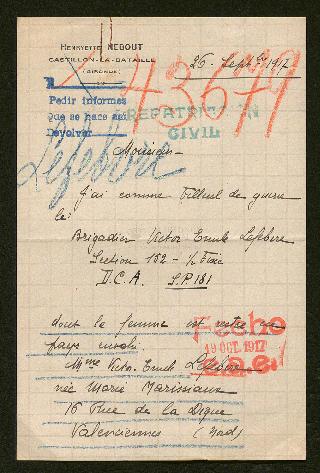 HENRYETTE NEBOUT
CASTILLON-LA-BATAILLE
(GIRONDE)
26 Septbre 1917
43679
Pedir informes
Que se hace saber
Devolver
REPATRIACION
CIVIL
Lefebvre
Monsieur-
J'ai comme Filleul de guerre
le
Brigadier Victor Emile Lefebvre
Section 152 - 1/2 Fixe
D.C.A. S.P. 181
dont la femme est restée en
pays envahi.
Fecho
19 OCT. 1917
Mme Victor Emile Lefebvre
née Marie Marissiaux
16 Rue de la Digue
Valenciennes (Nord)